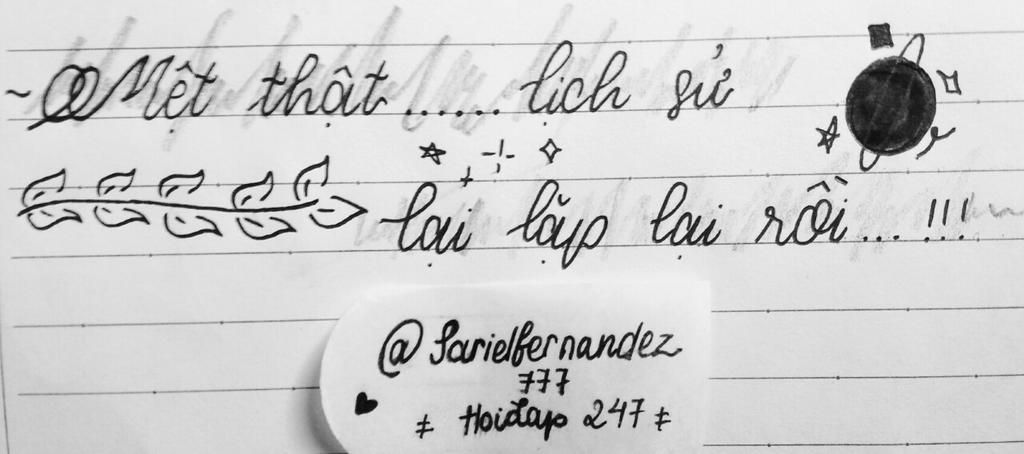 ~ Mệt thật ...... lịch sử
lại lặp lại rồi ... !!!
@ Sarielfernandez
777
≠ Hoidap 247 ≠